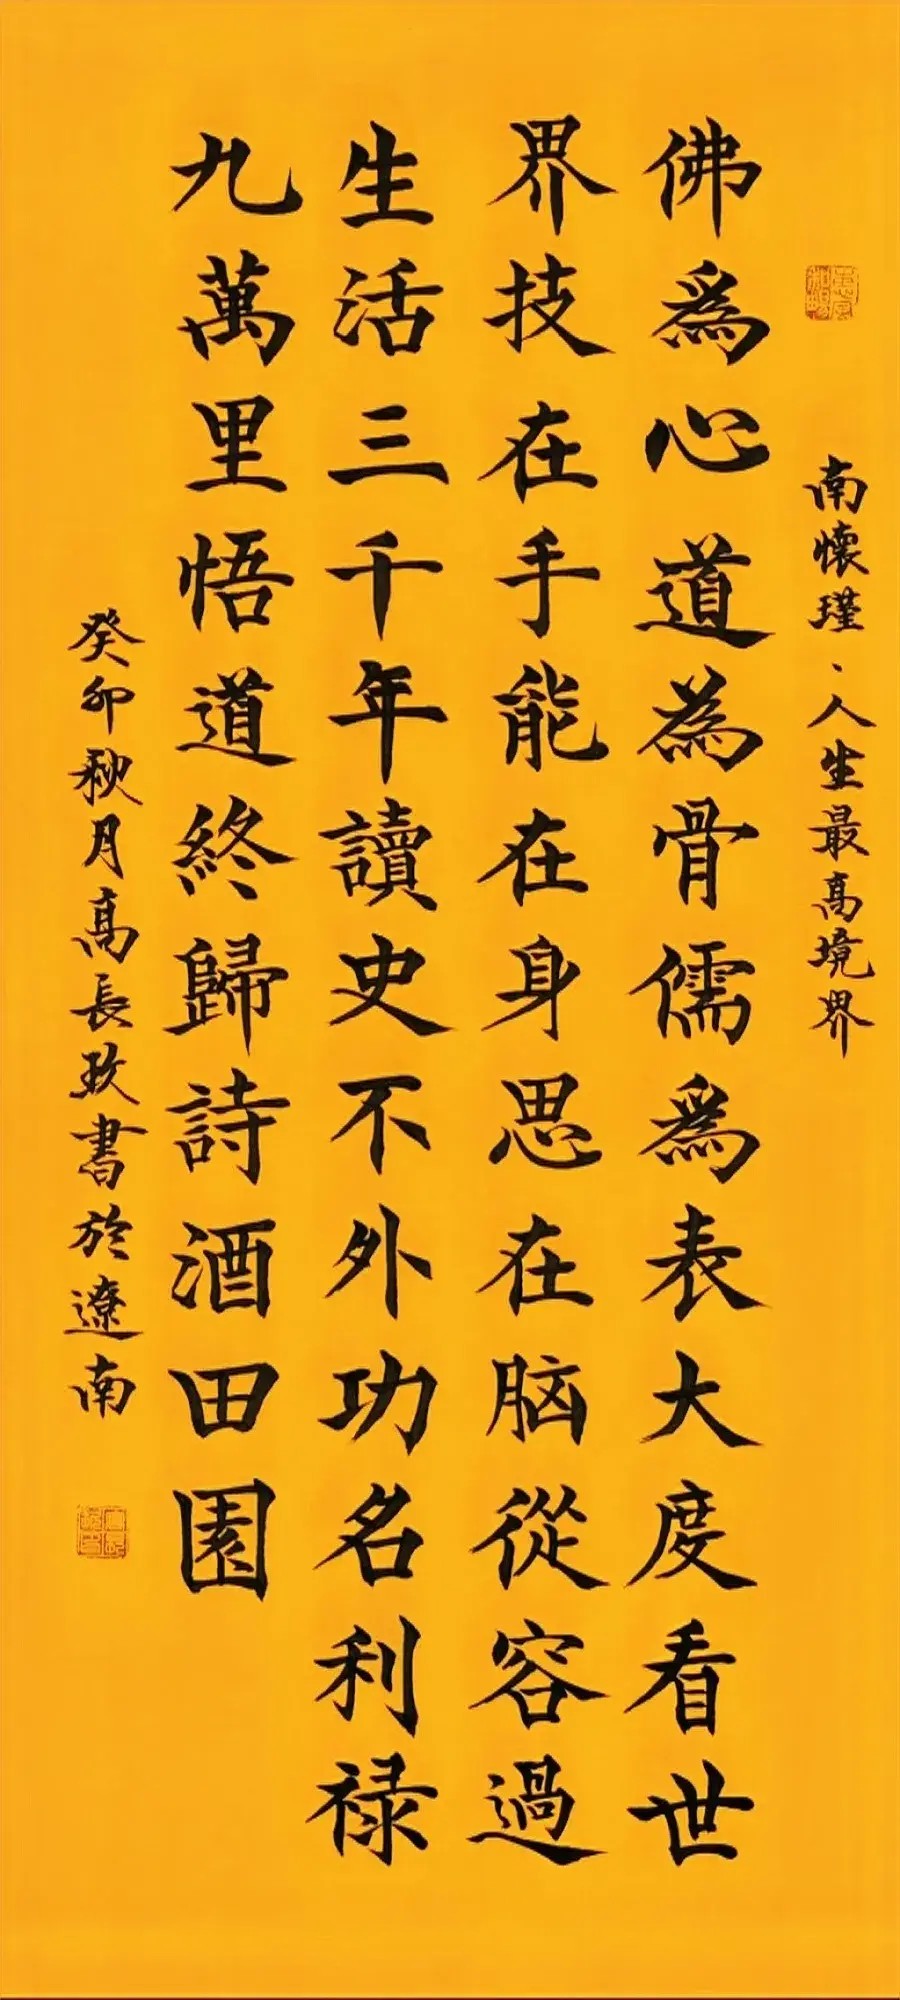 南懷瑾、人生最高境界
佛為心道為骨儒為表大度看世
界技在手能在身思在脑從容過
生活三千年讀史不外功名利禄
九萬里悟道終歸詩酒田園
癸卯秋月高長玖書於遼南